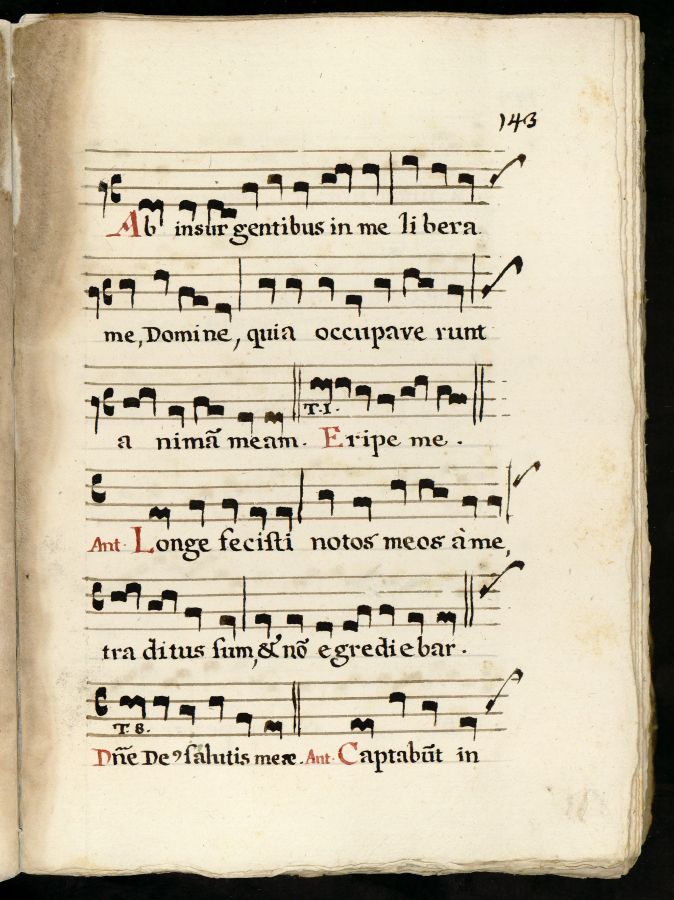 143
Ab insurgentibus in me libera
me, Domine, quia occupaverunt
T. I.
a nimā meam. Eripe me.
Ant. Longe feciſti notos meos à me,
traditus ſum, & nō egrediebar.
T. 8.
Dn̄e Deꝰ ſalutis meæ. Ant. Captabūt in